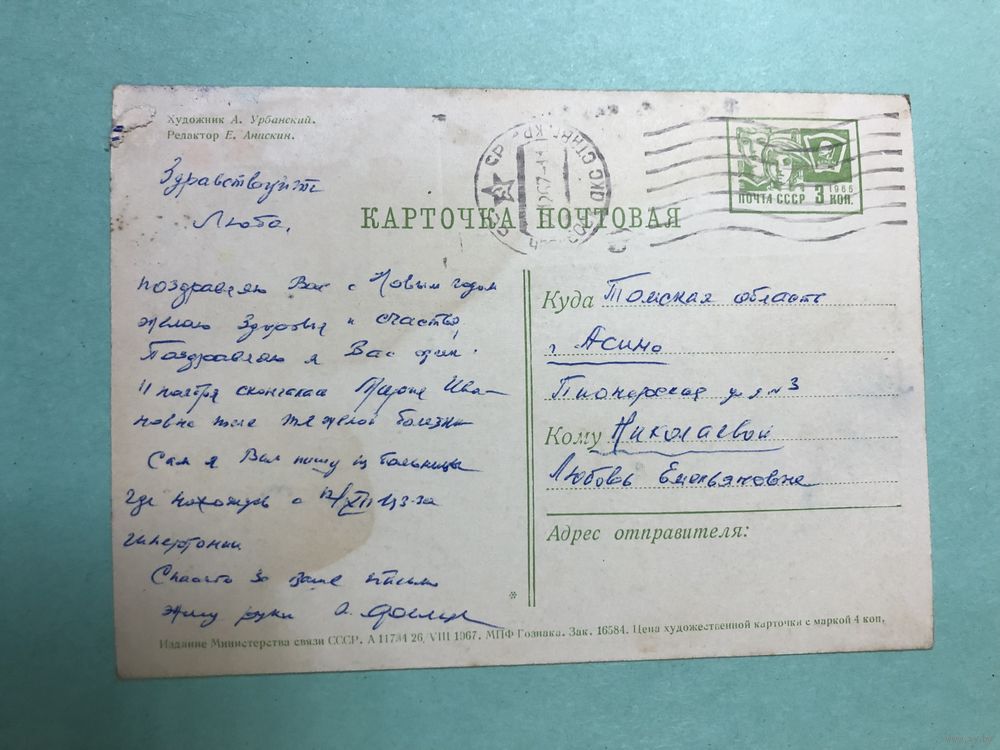 Художник А. Урбанский.
Редактор Е. Анискин.
Здравствуйте
Люба,
поздравляю Вас с Новым годом
желаю здоровья и счастья,
Поздравляю я Вас
11 ноября скончалась Мария Ива-
новна после тяжёлой болезни
Сам я Вам пишу из больницы
где нахожусь с 12/XII из-за
гипертонии
Спасибо за ваше письмо
Жму руки А.
КАРТОЧКА ПОЧТОВАЯ
ПОЧТА СССР 3 КОП.
1966
Куда Томская область
г. Асино
Пионерская ул № 3
Кому Николаевой
Любовь Емельяновне
Адрес отправителя:
*
Издание Министерства связи СССР. А 11734 26/VIII 1967. МПФ Гознака. Зак. 16584. Цена художественной карточки с маркой 4 коп.